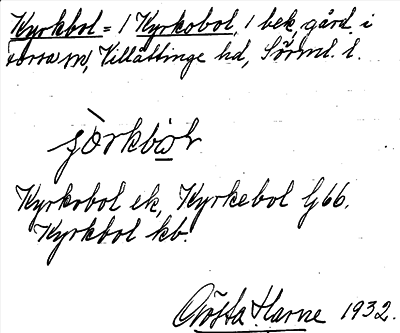 Kyrkbol = 1 Kyrkobol, 1 bek. gård i
Forssa sn, Villåttinge hd, Sörml. l.
Kyrkobol ek, Kyrkebol G66.
Kyrkbol kb.
Gösta Harne 1932.